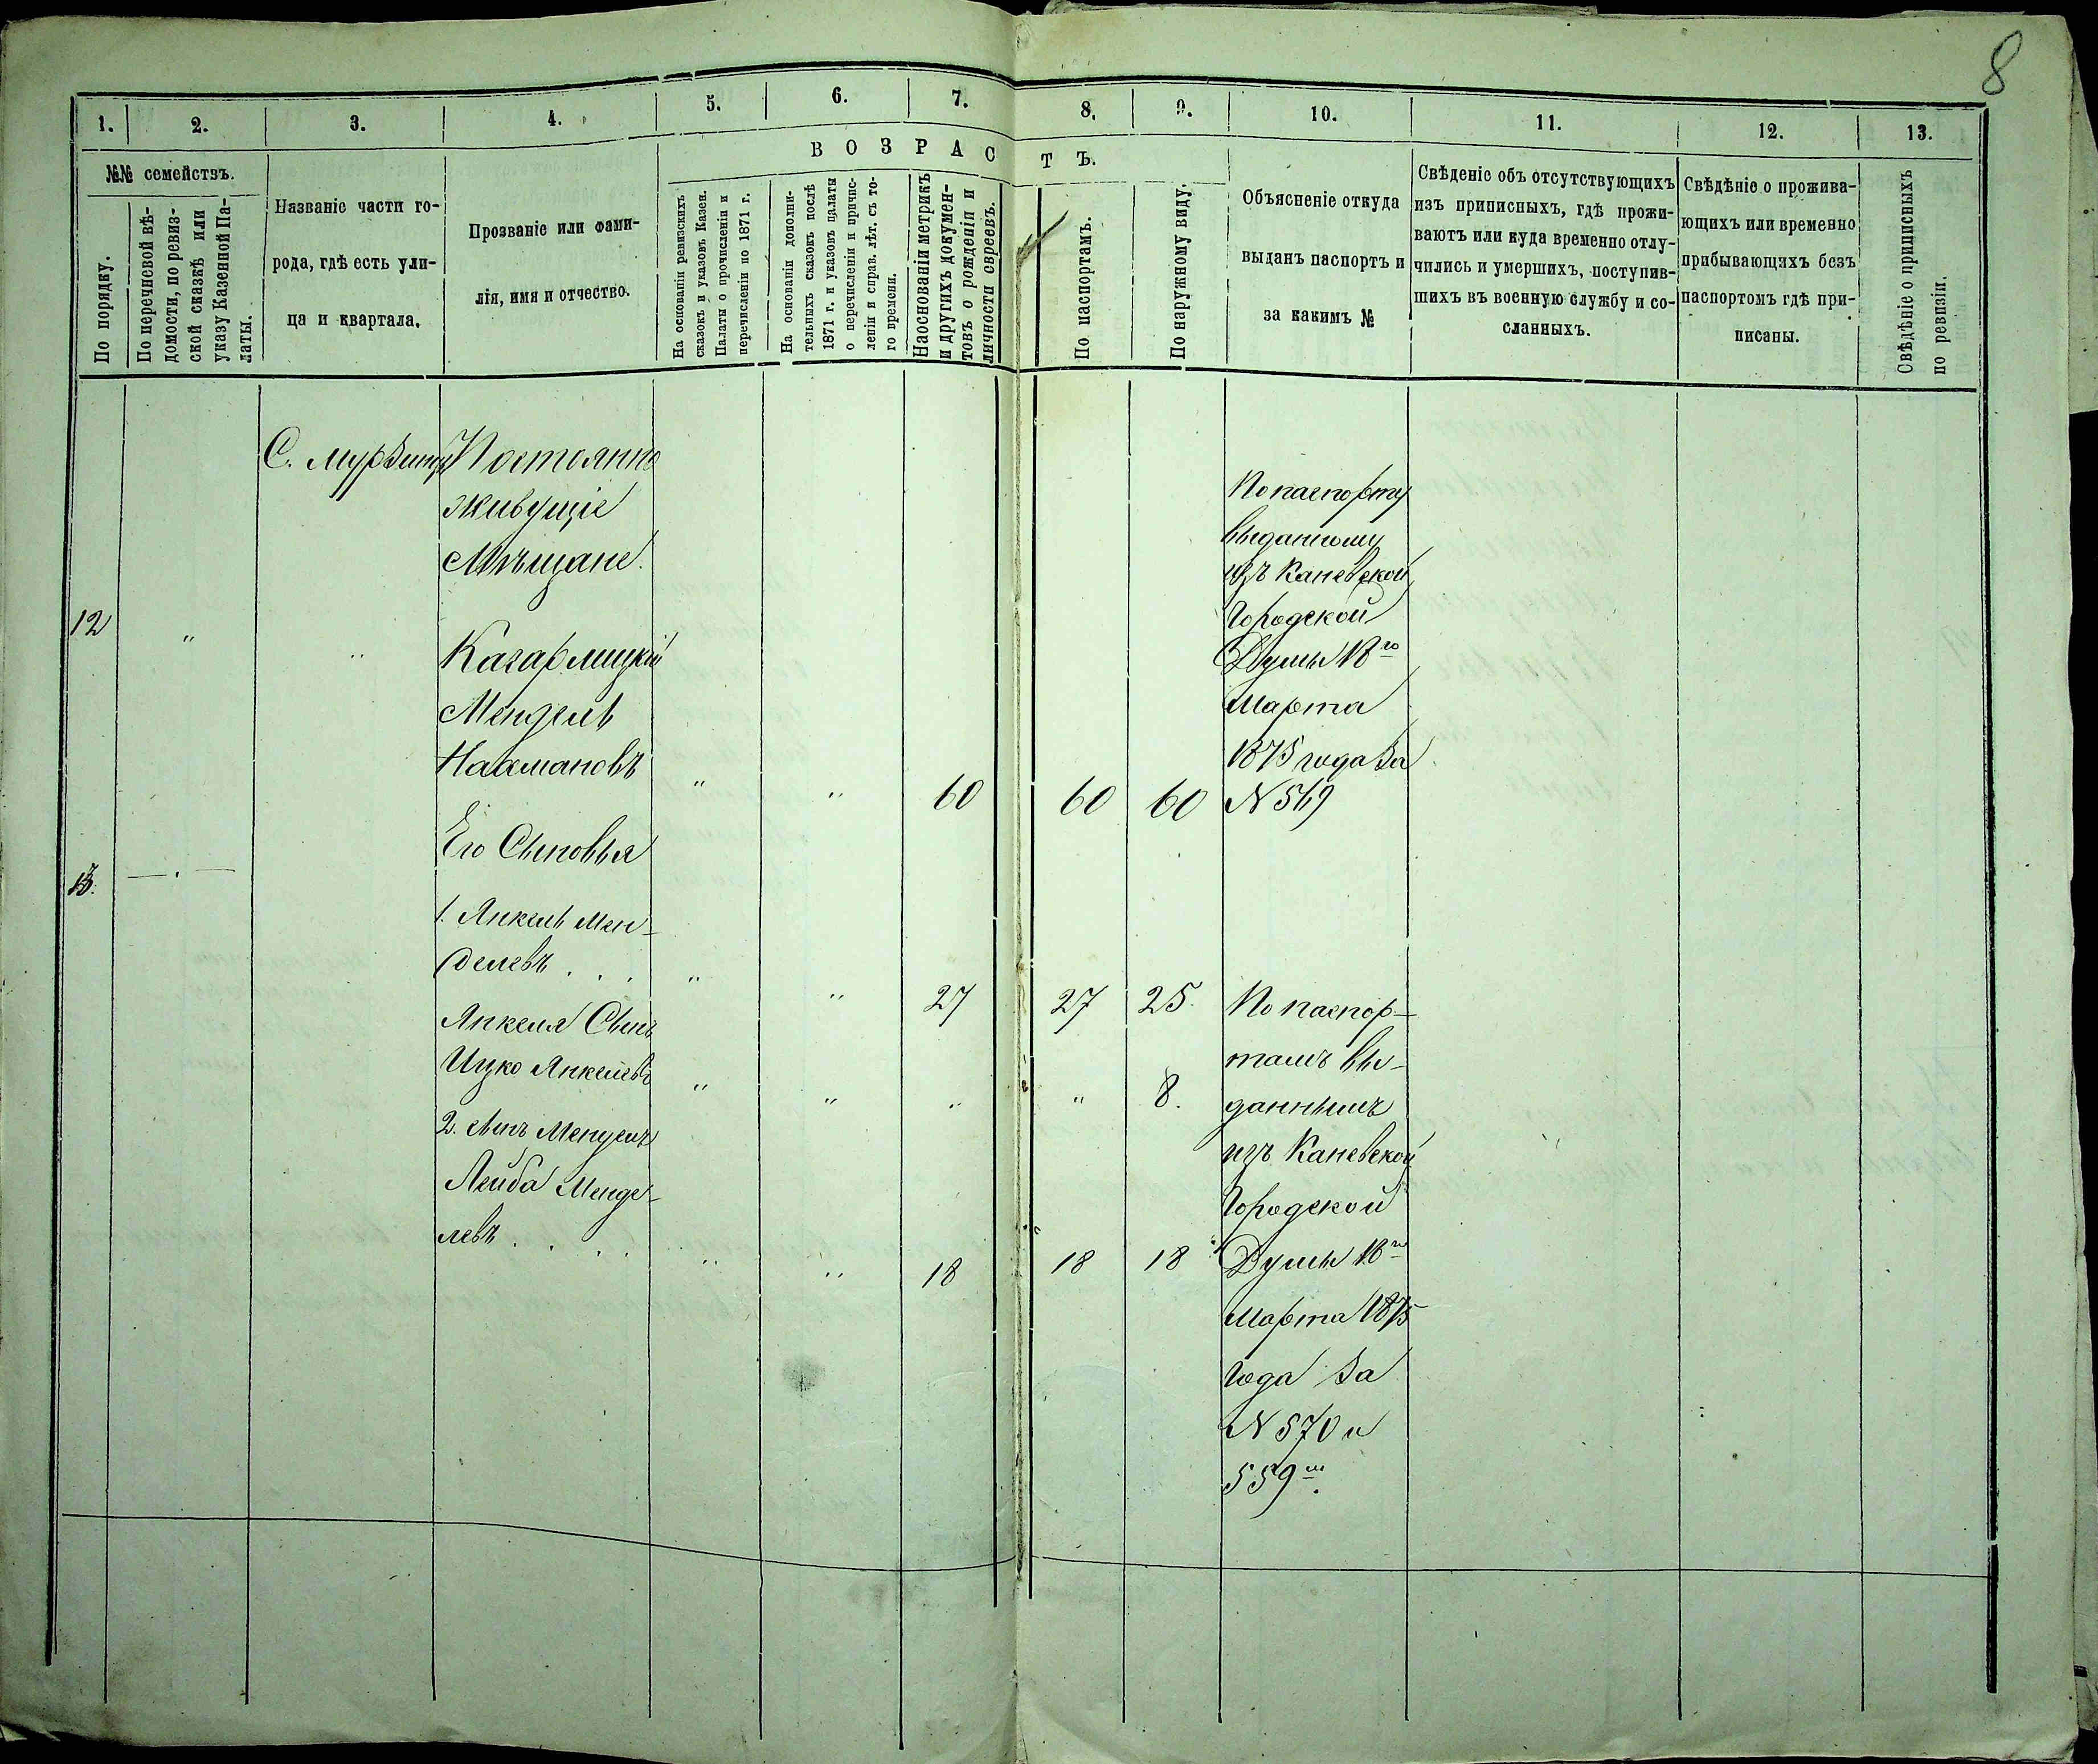 8
1. 2. 3. 4. 5. 6. 7. 8. 9. 10. 11. 12. 13.
ВОЗРАСТЪ.
№№ семействъ.
По порядку.
По перечневой вѣ-
домости, по ревиз-
ской сказкѣ или
указу Казенной Па-
латы.
Названіе части го-
рода, гдѣ есть ули-
ца и квартала.
Прозваніе или фами-
лія, имя и отчество.
На основаніи ревизскихъ
сказокъ и указовъ Казен.
Палаты о прочисленіи и
перечисленіи по 1871 г.
На основаніи дополни-
тельныхъ сказокъ послѣ
1871 г. и указовъ палаты
о перечисленіи и причис-
леніи и справ. лѣт. съ то-
го времени.
Наоснованіи метрикъ
и другихъ докумен-
товъ о рожденіи и
личности евреевъ.
По паспортамъ.
По наружному виду.
Объясненіе откуда
выданъ паспортъ и
за какимъ №
Свѣденіе объ отсутствующихъ
изъ приписныхъ, гдѣ прожи-
ваютъ или куда временно отлу-
чились и умершихъ, поступив-
шихъ въ военную службу и со-
сланныхъ.
Свѣдѣніе о прожива-
ющихъ или временно
прибывающихъ безъ
паспортомъ гдѣ при-
писаны.
Свѣдѣніе о приписныхъ
по ревизіи.
С.
Постоянно
живущіе
Мѣщане.
12 " "
Кагарлицкій
Мендель
Нахмановъ " " 60 60 60
По паспорту
выданному
изъ Каневской
Городской
Думы 18го
Марта
1875 года за
N 569
13. — . —
Его Сыновья
1. Янкель Мен-
делевъ . . . " " 27 27 25.
Янкеля Сынъ
Ицко Янкелевъ " " " " 8.
2. сынъ Менделя
Лейба Менде-
левъ . . . . " " 18 18 18
По паспор-
тамъ вы-
даннымъ
изъ Каневской
Городской
Думы 18го
Марта 1875
года за
N 570 и
559м.